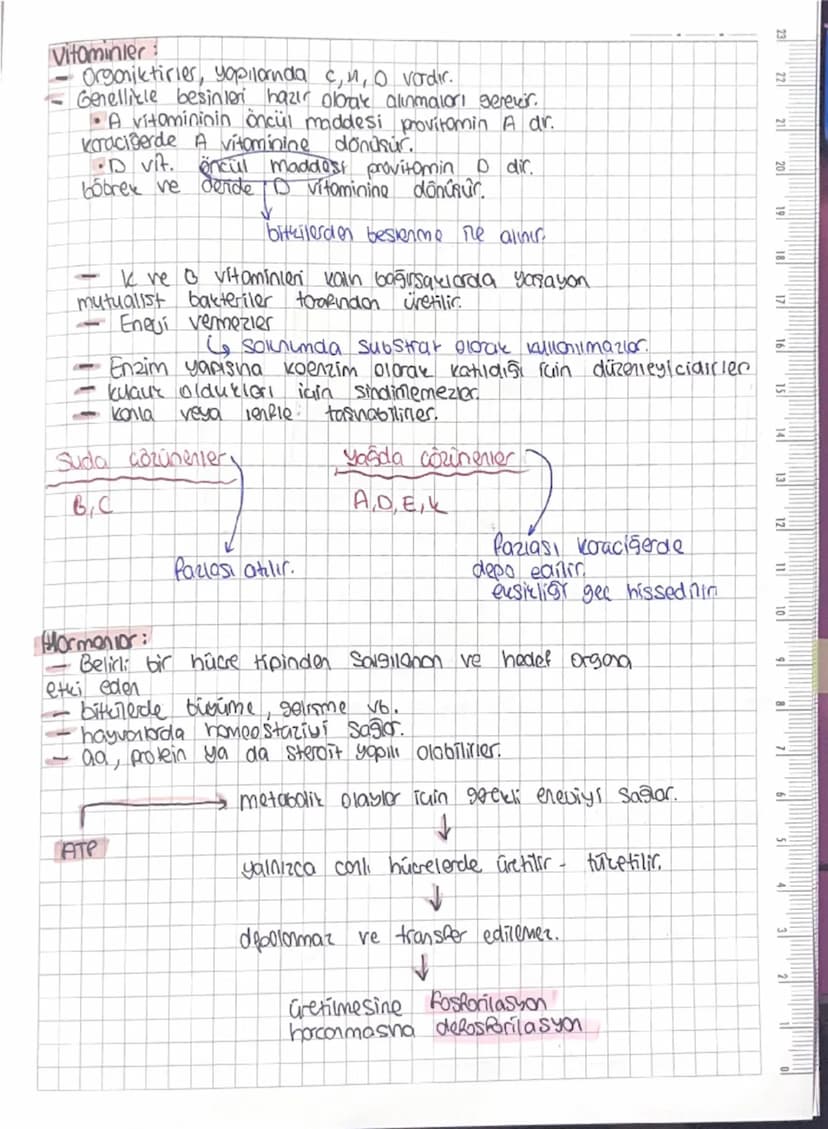 Vitaminler:
- Organiktirler, yapılarında C, H, O vardır.
- Genellikle besinleri hazır olarak alınmaları gerekir.
• A vitamininin öncül maddesi provitamin A dır.
karaciğerde A vitaminine dönüşür.
• D vit. öncül maddesi provitamin D dir.
böbrek ve deride D vitaminine dönüşür.
bitkilerden beslenme ile alınır.
- K ve B vitaminleri kalın bağırsaklarda yaşayan
mutualist bakteriler tarafından üretilir.
- Enerji vermezler
↳ solunumda substrat olarak kullanılmazlar.
- Enzim yapısına koenzim olarak katıldığı için düzenleyicidirler
- küçük oldukları için sindirilemezler.
- kanla veya lenfle taşınabilirler.
Suda çözünenler yağda çözünenler
B, C A, D, E, K
fazlası atılır. fazlası karaciğerde
depo edilir.
eksikliği geç hissedilir
Hormonlar:
- Belirli bir hücre tipinden salgılanan ve hedef organa
etki eden
- bitkilerde büyüme, gelişme vb.
- hayvanlarda homeostaziyi sağlar.
- aa, protein ya da steroit yapılı olabilirler.
→ metabolik olaylar için gerekli enerjiyi sağlar.
↓
ATP
yalnızca canlı hücrelerde üretilir - tüketilir.
↓
depolanmaz ve transfer edilemez.
↓
üretilmesine fosforilasyon
harcanmasına defosforilasyon
23
22
21
20
19
18
17
16
15
14
13
12
11
10
9
8
7
6
5
4
3
2
1
0